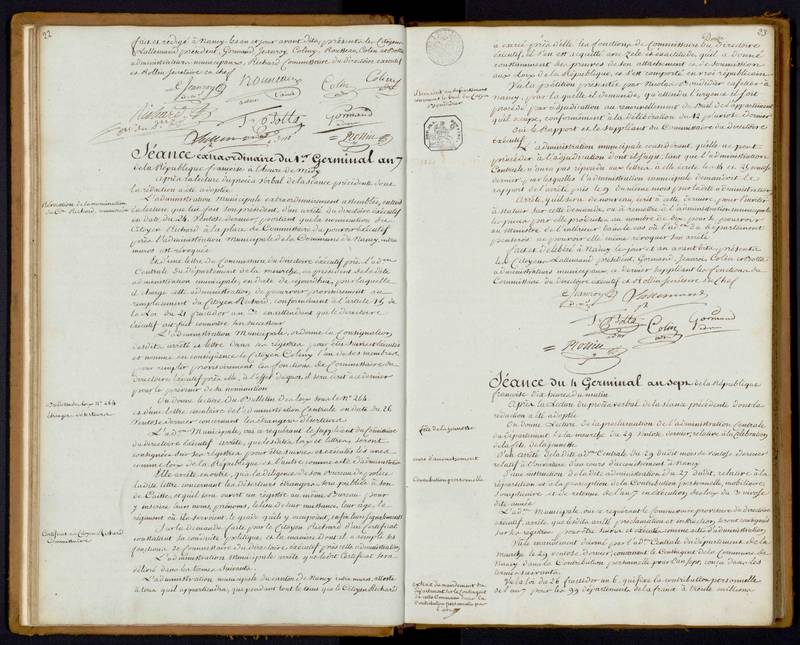 22
fait et rédigé à Nancy les an et jour avant dits, présents les Citoyens
Lallemand président, Gormand, Jeanroy, Coliny, Rousseau, Colin et Botta
administrateurs municipaux, Richard Commissaire du directoire exécutif
et Rollin secrétaire en chef
Jeanroy
Rousseau
Colin
Coliny
Richard
F. Botta
Gormand
Lallemand
Rollin
Séance extraordinaire du 1er Germinal an 7
de la République française à l'heure de midy
Après la lecture du procès verbal de la séance précédente dont
la rédaction a été adoptée
Révocation de la nomination
du Cen Richard, commissaire
L'administration Municipale extraordinairement assemblée, entend
la lecture que lui fait son président, d'un arrêté du directoire exécutif
en date du 24 Ventôse dernier portant que la nomination du
Citoyen Richard à la place de Commissaire du pouvoir exécutif
près l'administration Municipale de la Commune de Nancy, intra
muros est révoquée
Et d'une lettre du Commissaire du directoire exécutif près l'adon
Centrale du département de la meurthe, au président de ladite
administration municipale, en date de cejourd'hui, par laquelle
il charge cette administration, de pourvoir provisoirement au
remplacement du Citoyen Richard, conformément à l'article 15 de
la Loi du 21 fructidor an 3e en attendant que le directoire
exécutif ait fait connoître son successeur
L'administration Municipale, ordonne la consignation,
desdits arrêté et lettre dans ses registres pour être suivis et exécutés
et nomme en conséquence le Citoyen Coliny l'un de ses membres
pour remplir provisoirement les fonctions de Commissaire du
directoire exécutif près elle, à l'effet de quoi il sera écrit au dernier
pour le prévenir de sa nomination
Bulletin des Loix No 264
étrangers déserteurs
On donne lecture du Bulletin des loix sous le No 264
et d'une lettre circulaire de l'administration Centrale en date du 26
Ventôse dernier concernant les étrangers déserteurs
L'adon Municipale, ouï ce requérant le suppléant du Commissaire
du directoire exécutif arrête, que lesdits loix et lettres seront
consignées sur ses registres pour être suivies et exécutées les unes
comme loix de la République et l'autre comme acte d'administration
Elle arrête, en outre, qu'à la diligence de son Bureau de police
ladite lettre concernant les déserteurs étrangers, sera publiée à son
de Caisse, et qu'il sera ouvert un registre au même Bureau pour
y inscrire leurs noms, prénoms, le lieu de leur naissance, leur âge, le
régiment où ils servoient, le grade qu'ils y occupoient, enfin leurs signalements
Certificat au Citoyen Richard
Commissaire
Sur la demande faite par le Citoyen Richard d'un Certificat
constatant sa conduite politique et la manière dont il a rempli les
fonctions de Commissaire du directoire exécutif près cette administration,
L'administration Municipale arrête que ledit Certificat sera
délivré dans les termes suivants.
L'administration municipale du canton de Nancy intra muros, atteste
à tous qu'il appartiendra, que pendant tout le tems que le Citoyen Richard
23
a exercé près d'elle les fonctions de Commissaire du Directoire
exécutif, il s'en est acquitté avec zèle et exactitude, qu'il a donné
constamment des preuves de son attachement et de soumission
aux Loix de la République, et s'est comporté en vrai républicain
Vu la pétition présentée par Nicolas Baudidier cafetier à
Nancy, par laquelle il demande, qu'attendu l'urgence il soit
procédé par adjudication au renouvellement du Bail de l'appartement
qu'il occupe, conformément à la délibération du 12 pluviôse dernier
Ouï le Rapport et le suppléant du Commissaire du directoire
exécutif
L'administration municipale considérant, qu'elle ne peut
procéder à l'adjudication dont il s'agit, tant que l'administration
Centrale n'aura pas répondu aux lettres à elle écrites les 14 et 25 ventôse
dernier par lesquelles l'administration municipale demandoit le
rapport de l'arrêté pris le 9 du même mois par ladite administration
Arrête, qu'il sera de nouveau écrit à cette dernière pour l'inviter
à statuer sur cette demande ou à remettre à l'administration municipale
les pièces par elle produites au nombre de dix, pour se pourvoir
au Ministre de l'intérieur dans le cas où l'adon du département
penseroit ne pouvoir elle même révoquer son arrêté
fait et délibéré à Nancy les jour et an avant dits, présents
les Citoyens Lallemand président, Gormand, Jeanroi, Colin et Botta
administrateurs municipaux, ce dernier suppléant les fonctions de
Commissaire du directoire exécutif et Rollin secrétaire en Chef
Jeanroy
Lallemand
F. Botta
Colin
Gormand
Rollin
Séance du 4 Germinal an sept de la République
française dix heures du matin
Après la Lecture du procès verbal de la séance précédente dont la
rédaction a été adoptée
Fête de la jeunesse
On donne Lecture de la proclamation de l'administration Centrale
du département de la meurthe du 29 Ventôse dernier, relative à la célébration
de la fête de la jeunesse
cours d'accouchement
D'un arrêté de ladite adon Centrale du 29 dudit mois de Ventôse dernier
relatif à l'ouverture d'un cours d'accouchement à Nancy
Contribution personnelle
D'une instruction de ladite administration du 27 dudit, relative à la
répartition et à la perception de la Contribution personnelle, mobiliaire,
somptuaire et de retenue de l'an 7 en exécution des loix du 3 nivôse
dite année
L'adon municipale, ouï ce requérant le Commissaire provisoire du directoire
exécutif, arrête, que lesdits arrêté, proclamation et instruction, seront consignés
sur ses registres, pour être suivis et exécutés, comme actes d'administration,
Extrait du mandement du
département sur le Contingent
de cette Commune dans la
Contribution personnelle pour
l'an 7
Vu le mandement donné par l'adon Centrale du département de la
meurthe le 29 ventôse dernier, concernant le Contingent de la Commune de
Nancy dans la Contribution personnelle pour l'an sept, conçu dans les
termes suivants.
Vu la loi du 26 fructidor an 6, qui fixe la contribution personnelle
de l'an 7 pour les 99 départements de la france à trente millions